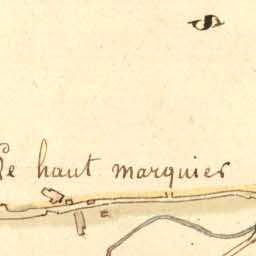 S
Le haut marquier